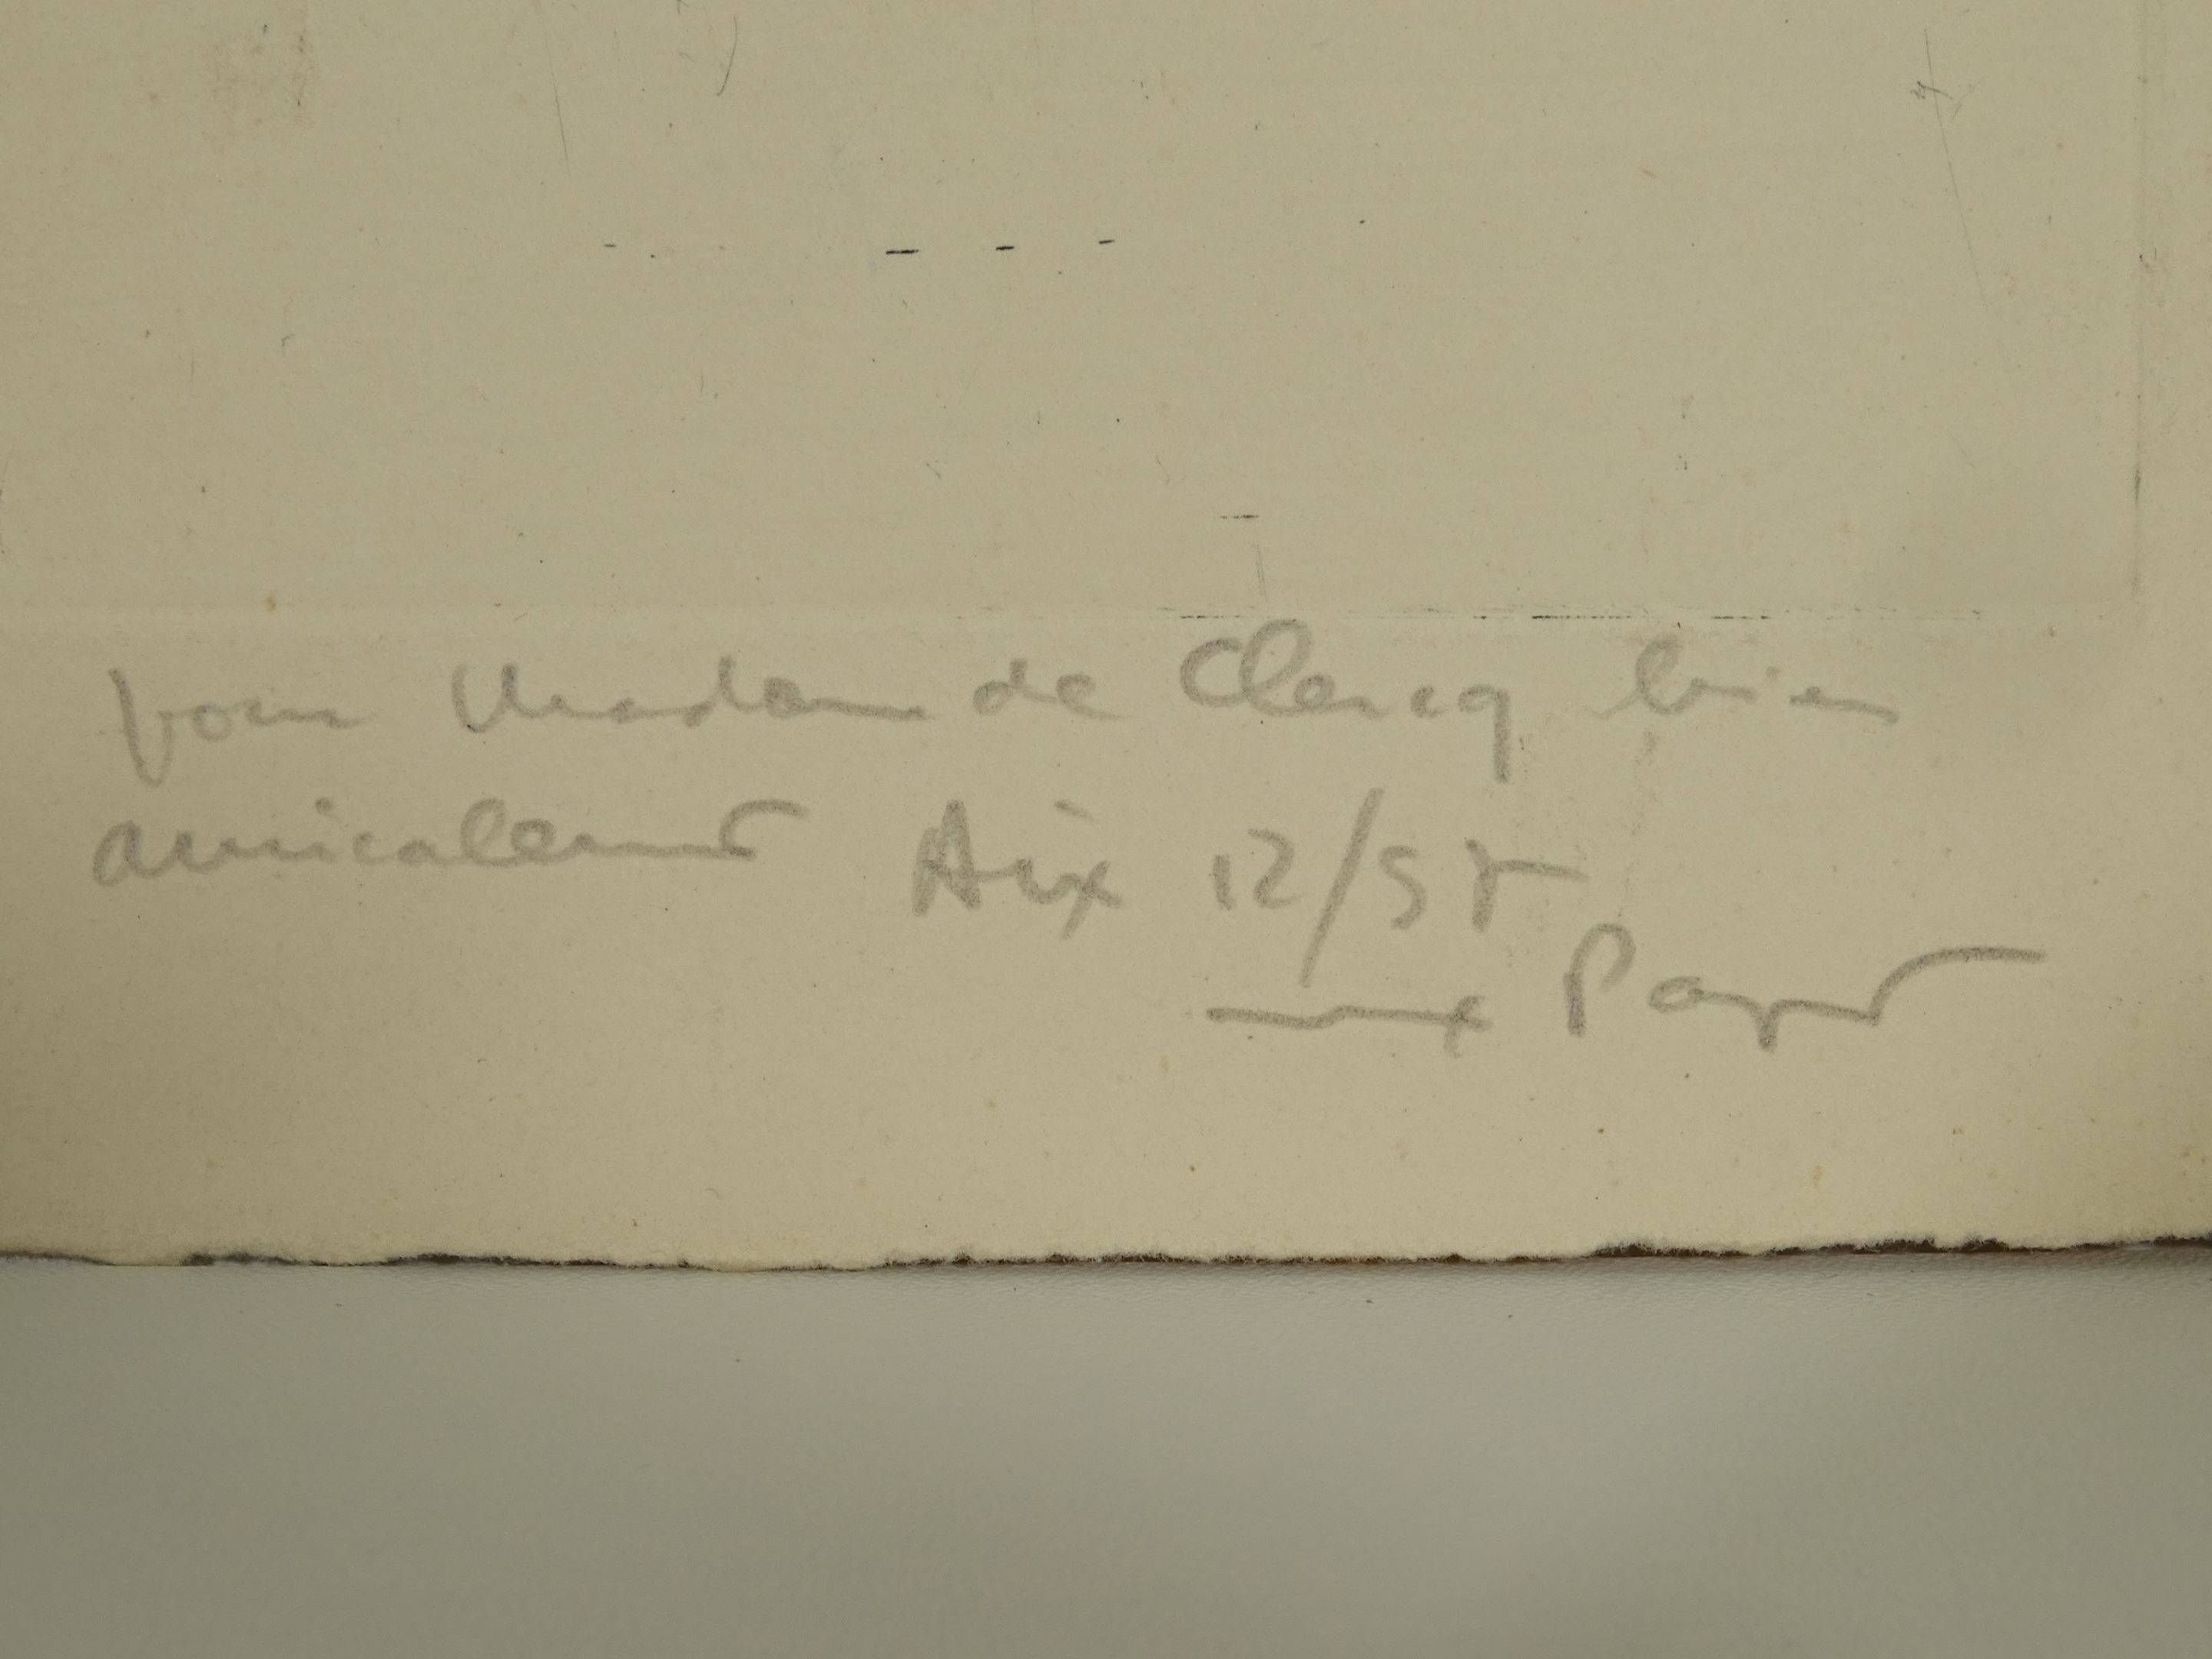 pour Madame de Clercq bien
amicalement Aix 12/58